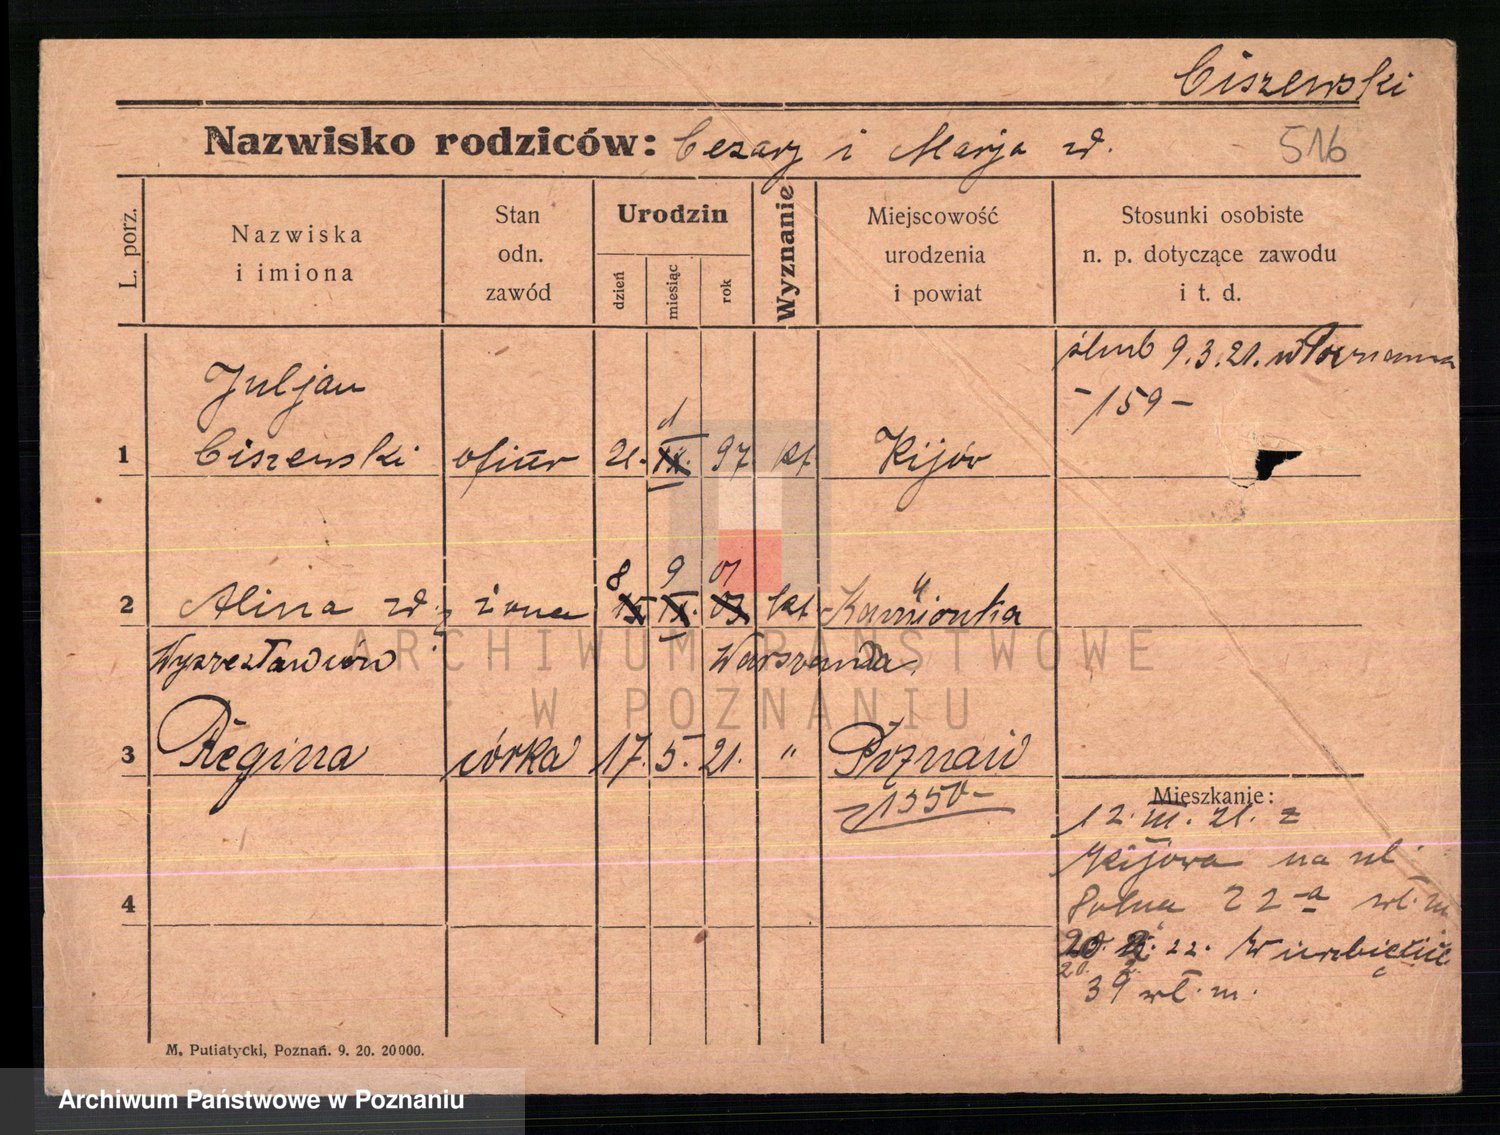 Ciszewski
Nazwisko rodziców: Cezary i Marja zd.
516
L. porz.
Nazwiska
i imiona
Stan
odn.
zawód
Urodzin
dzień
miesiąc
rok
Wyznanie
Miejscowość
urodzenia
i powiat
Stosunki osobiste
n. p. dotyczące zawodu
i t. d.
ślub 9.3.21. w Poznaniu
-159-
Juljan
1 Ciszewski oficer 21. 97 kt Kijów
8 9 01
2 Alina zd. żona 15 IX. 03 kt Kamionka
Warszawa
3 Regina córka 17. 5. 21. " Poznań
1350-
Mieszkanie:
12. III. 21. z
Kijowa na ul.
Polna 22-a wł. m
20. 2. 22. Wierzbięcic
20. 2.
39 wł. m.
4
M. Putiatycki, Poznań. 9. 20. 20000.
ARCHIWUM PAŃSTWOWE
W POZNANIU
Archiwum Państwowe w Poznaniu